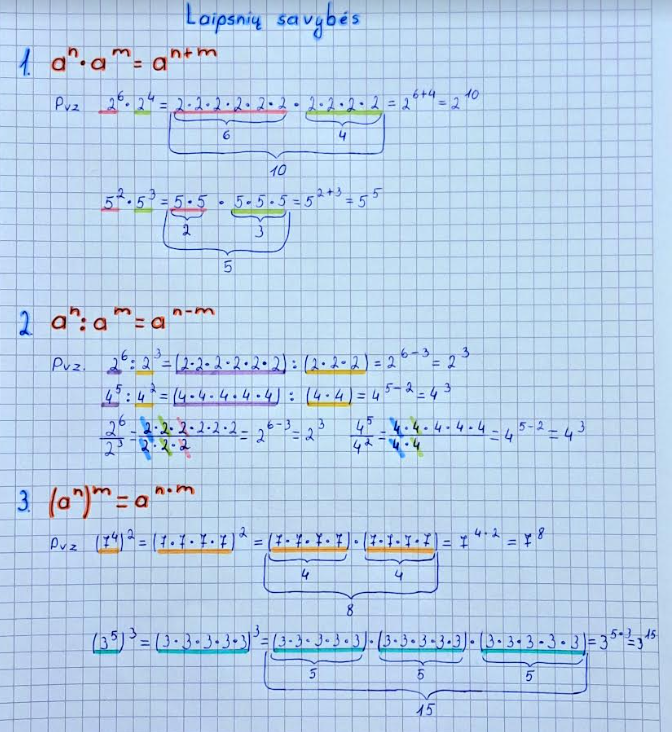 Laipsnių savybės
1. aⁿ · aᵐ = aⁿ⁺ᵐ
Pvz 2⁶ · 2⁴ = 2·2·2·2·2·2 · 2·2·2·2 = 2⁶⁺⁴ = 2¹⁰
6 4
10
5² · 5³ = 5·5 · 5·5·5 = 5²⁺³ = 5⁵
2 3
5
2 aⁿ : aᵐ = aⁿ⁻ᵐ
Pvz. 2⁶ : 2³ = (2·2·2·2·2·2) : (2·2·2) = 2⁶⁻³ = 2³
4⁵ : 4² = (4·4·4·4·4) : (4·4) = 4⁵⁻² = 4³
2⁶/2³ = 2·2·2·2·2·2/2·2·2 = 2⁶⁻³ = 2³ 4⁵/4² = 4·4·4·4·4/4·4 = 4⁵⁻² = 4³
3. (aⁿ)ᵐ = aⁿ·ᵐ
Pvz (7⁴)² = (7·7·7·7)² = (7·7·7·7)·(7·7·7·7) = 7⁴·² = 7⁸
4 4
8
(3⁵)³ = (3·3·3·3·3)³ = (3·3·3·3·3)·(3·3·3·3·3)·(3·3·3·3·3) = 3⁵·³ = 3¹⁵
5 5 5
15